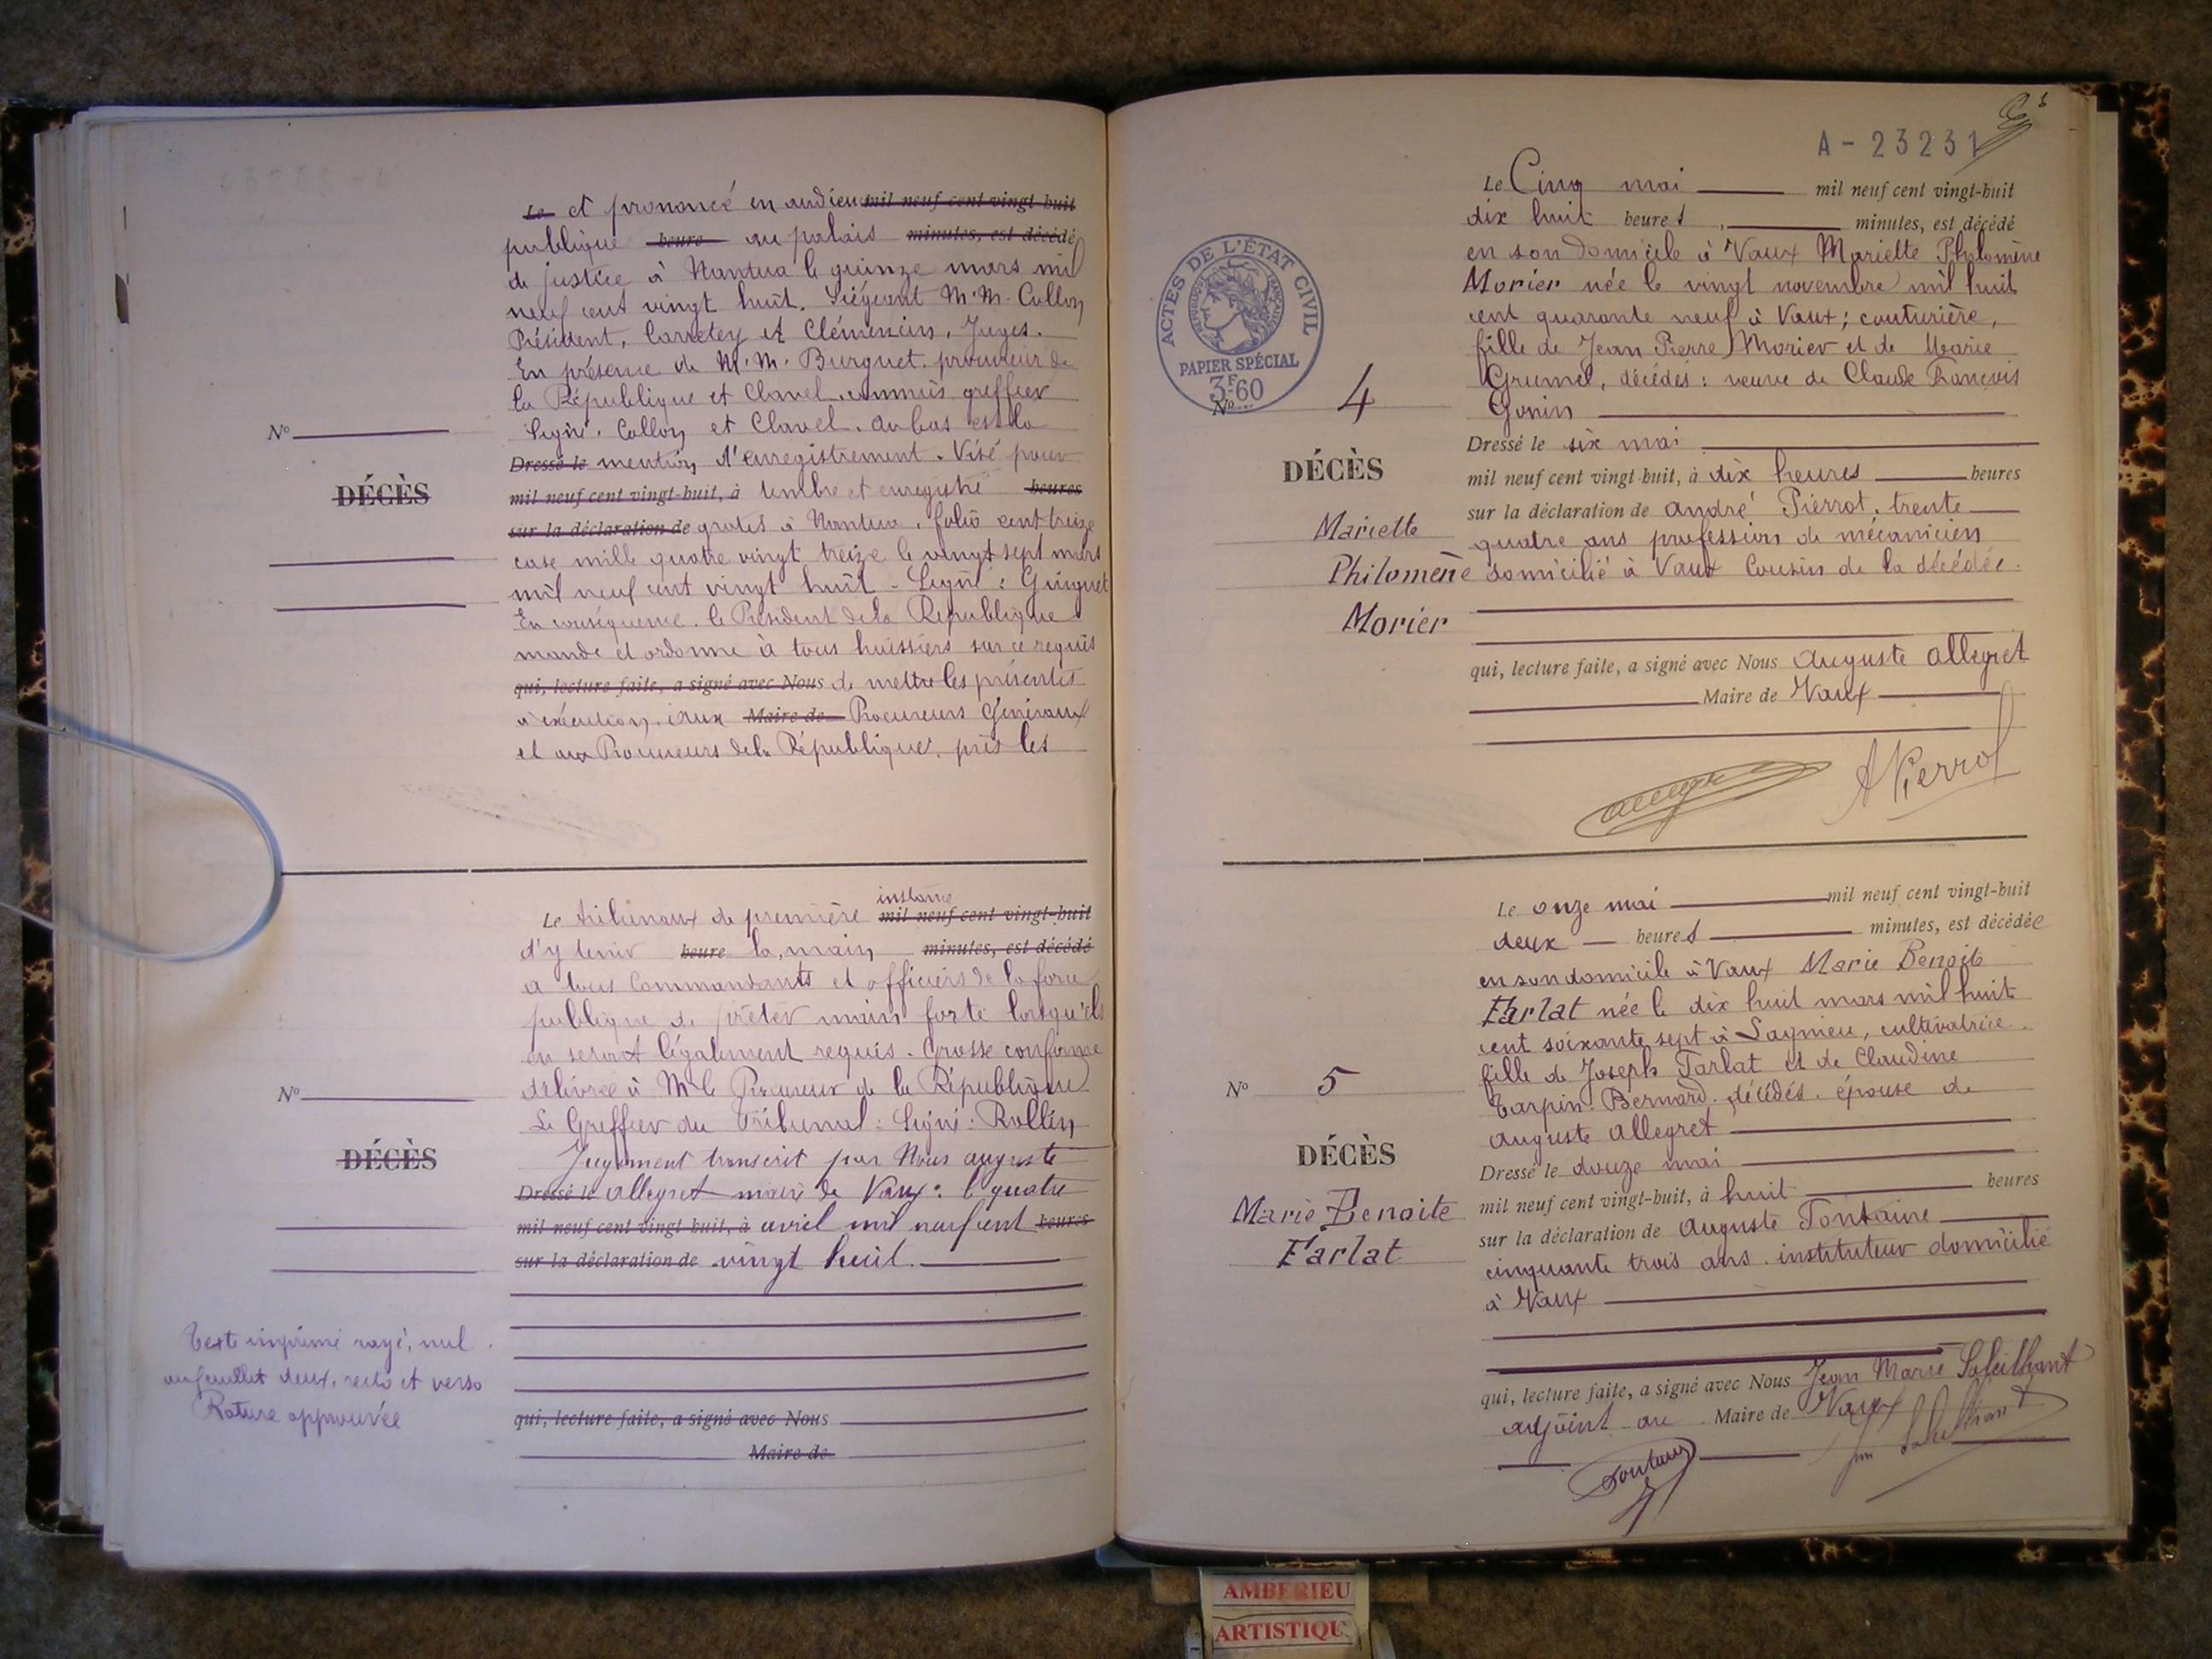 Le et prononcé en audience mil neuf cent vingt-huit
publique heure au palais minutes, est décédé
de justice à Nantua le quinze mars mil
neuf cent vingt huit. Siégeant M.M. Collon
Président, Carretey et Clémencin, Juges.
En présence de M.M. Burguet, procureur de
la République et Clavel, commis greffier
Signé: Collon et Clavel. Au bas est la
Dressé le mention d'enregistrement. Visé pour
mil neuf cent vingt-huit, à timbre et enregistré heures
sur la déclaration de gratis à Nantua, folio cent treize
case mille quatre vingt treize le vingt sept mars
mil neuf cent vingt huit - Signé: Guinguet
En conséquence, le Président de la République
mande et ordonne à tous huissiers sur ce requis
qui, lecture faite, a signé avec Nous de mettre les présentes
à exécution, aux Maire de Procureurs Généraux
et aux Procureurs de la République, près les
No
DÉCÈS
instance
Le tribunaux de première mil neuf cent vingt-huit
d'y tenir heure la main minutes, est décédé
a tous Commandants et officiers de la force
publique de prêter main forte lorsqu'ils
en seront légalement requis. Grosse conforme
délivrée à Mr le Procureur de la République
Le Greffier du Tribunal: Signé: Rollin
Jugement transcrit par Nous auguste
Dressé le allegret maire de Vaux: le quatre
mil neuf cent vingt-huit, à avril mil neuf cent heures
sur la déclaration de vingt huit.
qui, lecture faite, a signé avec Nous
Maire de
No
DÉCÈS
Texte imprimé rayé, nul
au feuillet deux, recto et verso
Rature approuvée
A-23231
ACTES DE L'ÉTAT CIVIL
RÉPUBLIQUE FRANÇAISE
PAPIER SPÉCIAL
3F60
No 4
DÉCÈS
Mariette
Philomène
Morier
Le Cinq mai mil neuf cent vingt-huit
dix huit heures, minutes, est décédé
en son domicile à Vaux Mariette Philomène
Morier née le vingt novembre mil huit
cent quarante neuf à Vaux; couturière,
fille de Jean Pierre Morier et de Marie
Grumel, décédés: veuve de Claude François
Gonin
Dressé le six mai
mil neuf cent vingt-huit, à dix heures heures
sur la déclaration de André Pierrot, trente
quatre ans profession de mécanicien
domicilié à Vaux Cousin de la décédée.
qui, lecture faite, a signé avec Nous Auguste Allegret
Maire de Vaux
A Pierrot
No 5
DÉCÈS
Marie Benoite
Farlat
Le onze mai mil neuf cent vingt-huit
deux heures minutes, est décédée
en son domicile à Vaux Marie Benoite
Farlat née le dix huit mars mil huit
cent soixante sept à Lagnieu, cultivatrice.
fille de Joseph Farlat et de Claudine
Tarpin-Bernard. décédés. épouse de
Auguste Allegret
Dressé le douze mai
mil neuf cent vingt-huit, à huit heures
sur la déclaration de Auguste Fontaine
cinquante trois ans. instituteur domicilié
à Vaux
qui, lecture faite, a signé avec Nous Jean Marie
adjoint au Maire de Vaux
AMBERIEU
ARTISTIQU